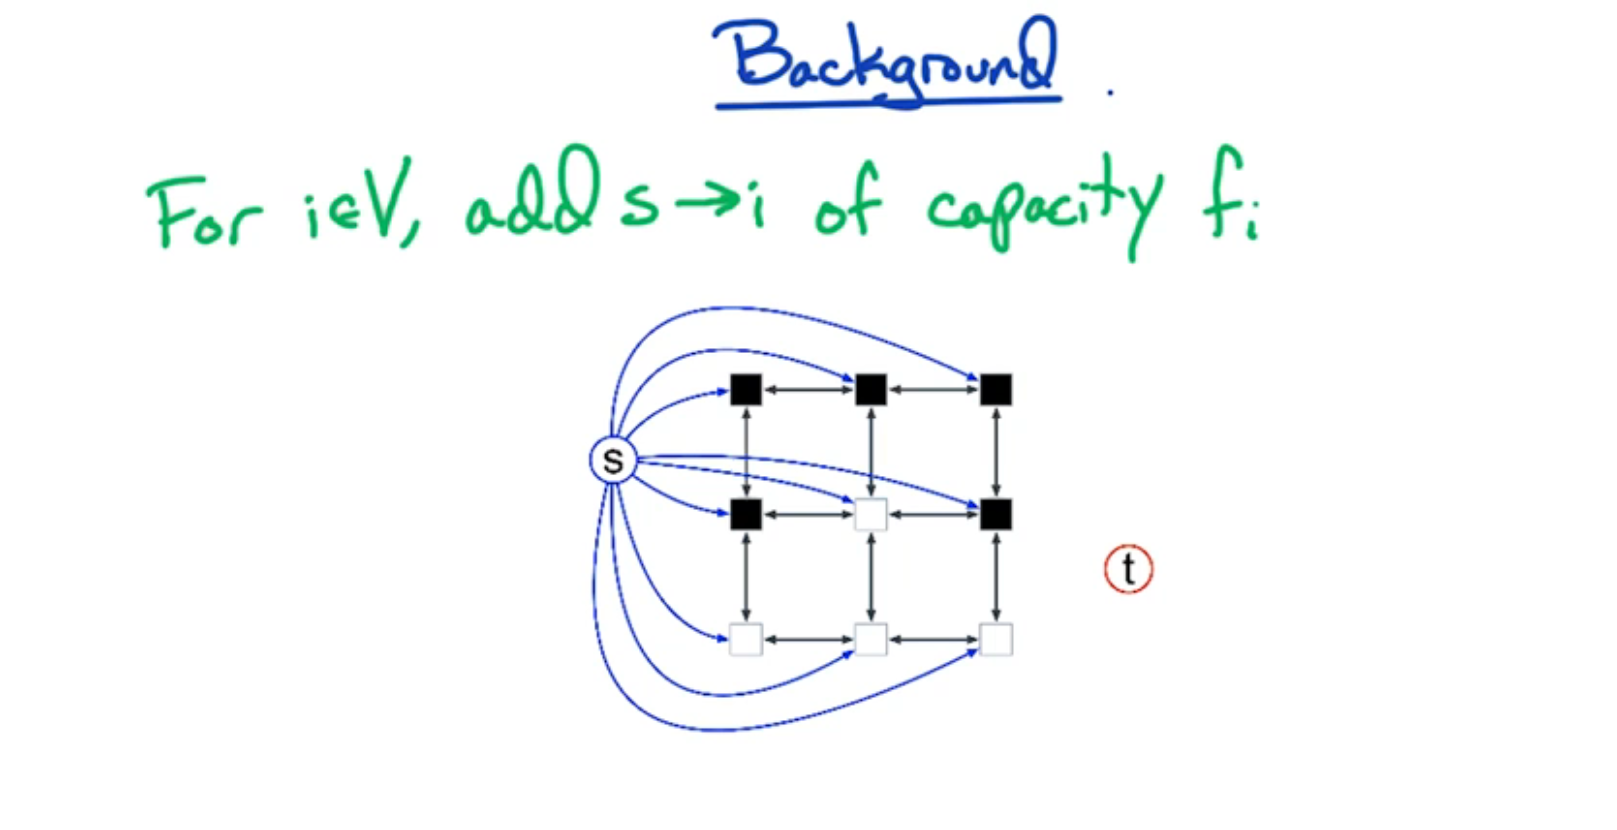 Background
For i∈V, add s→i of capacity fᵢ
s
t